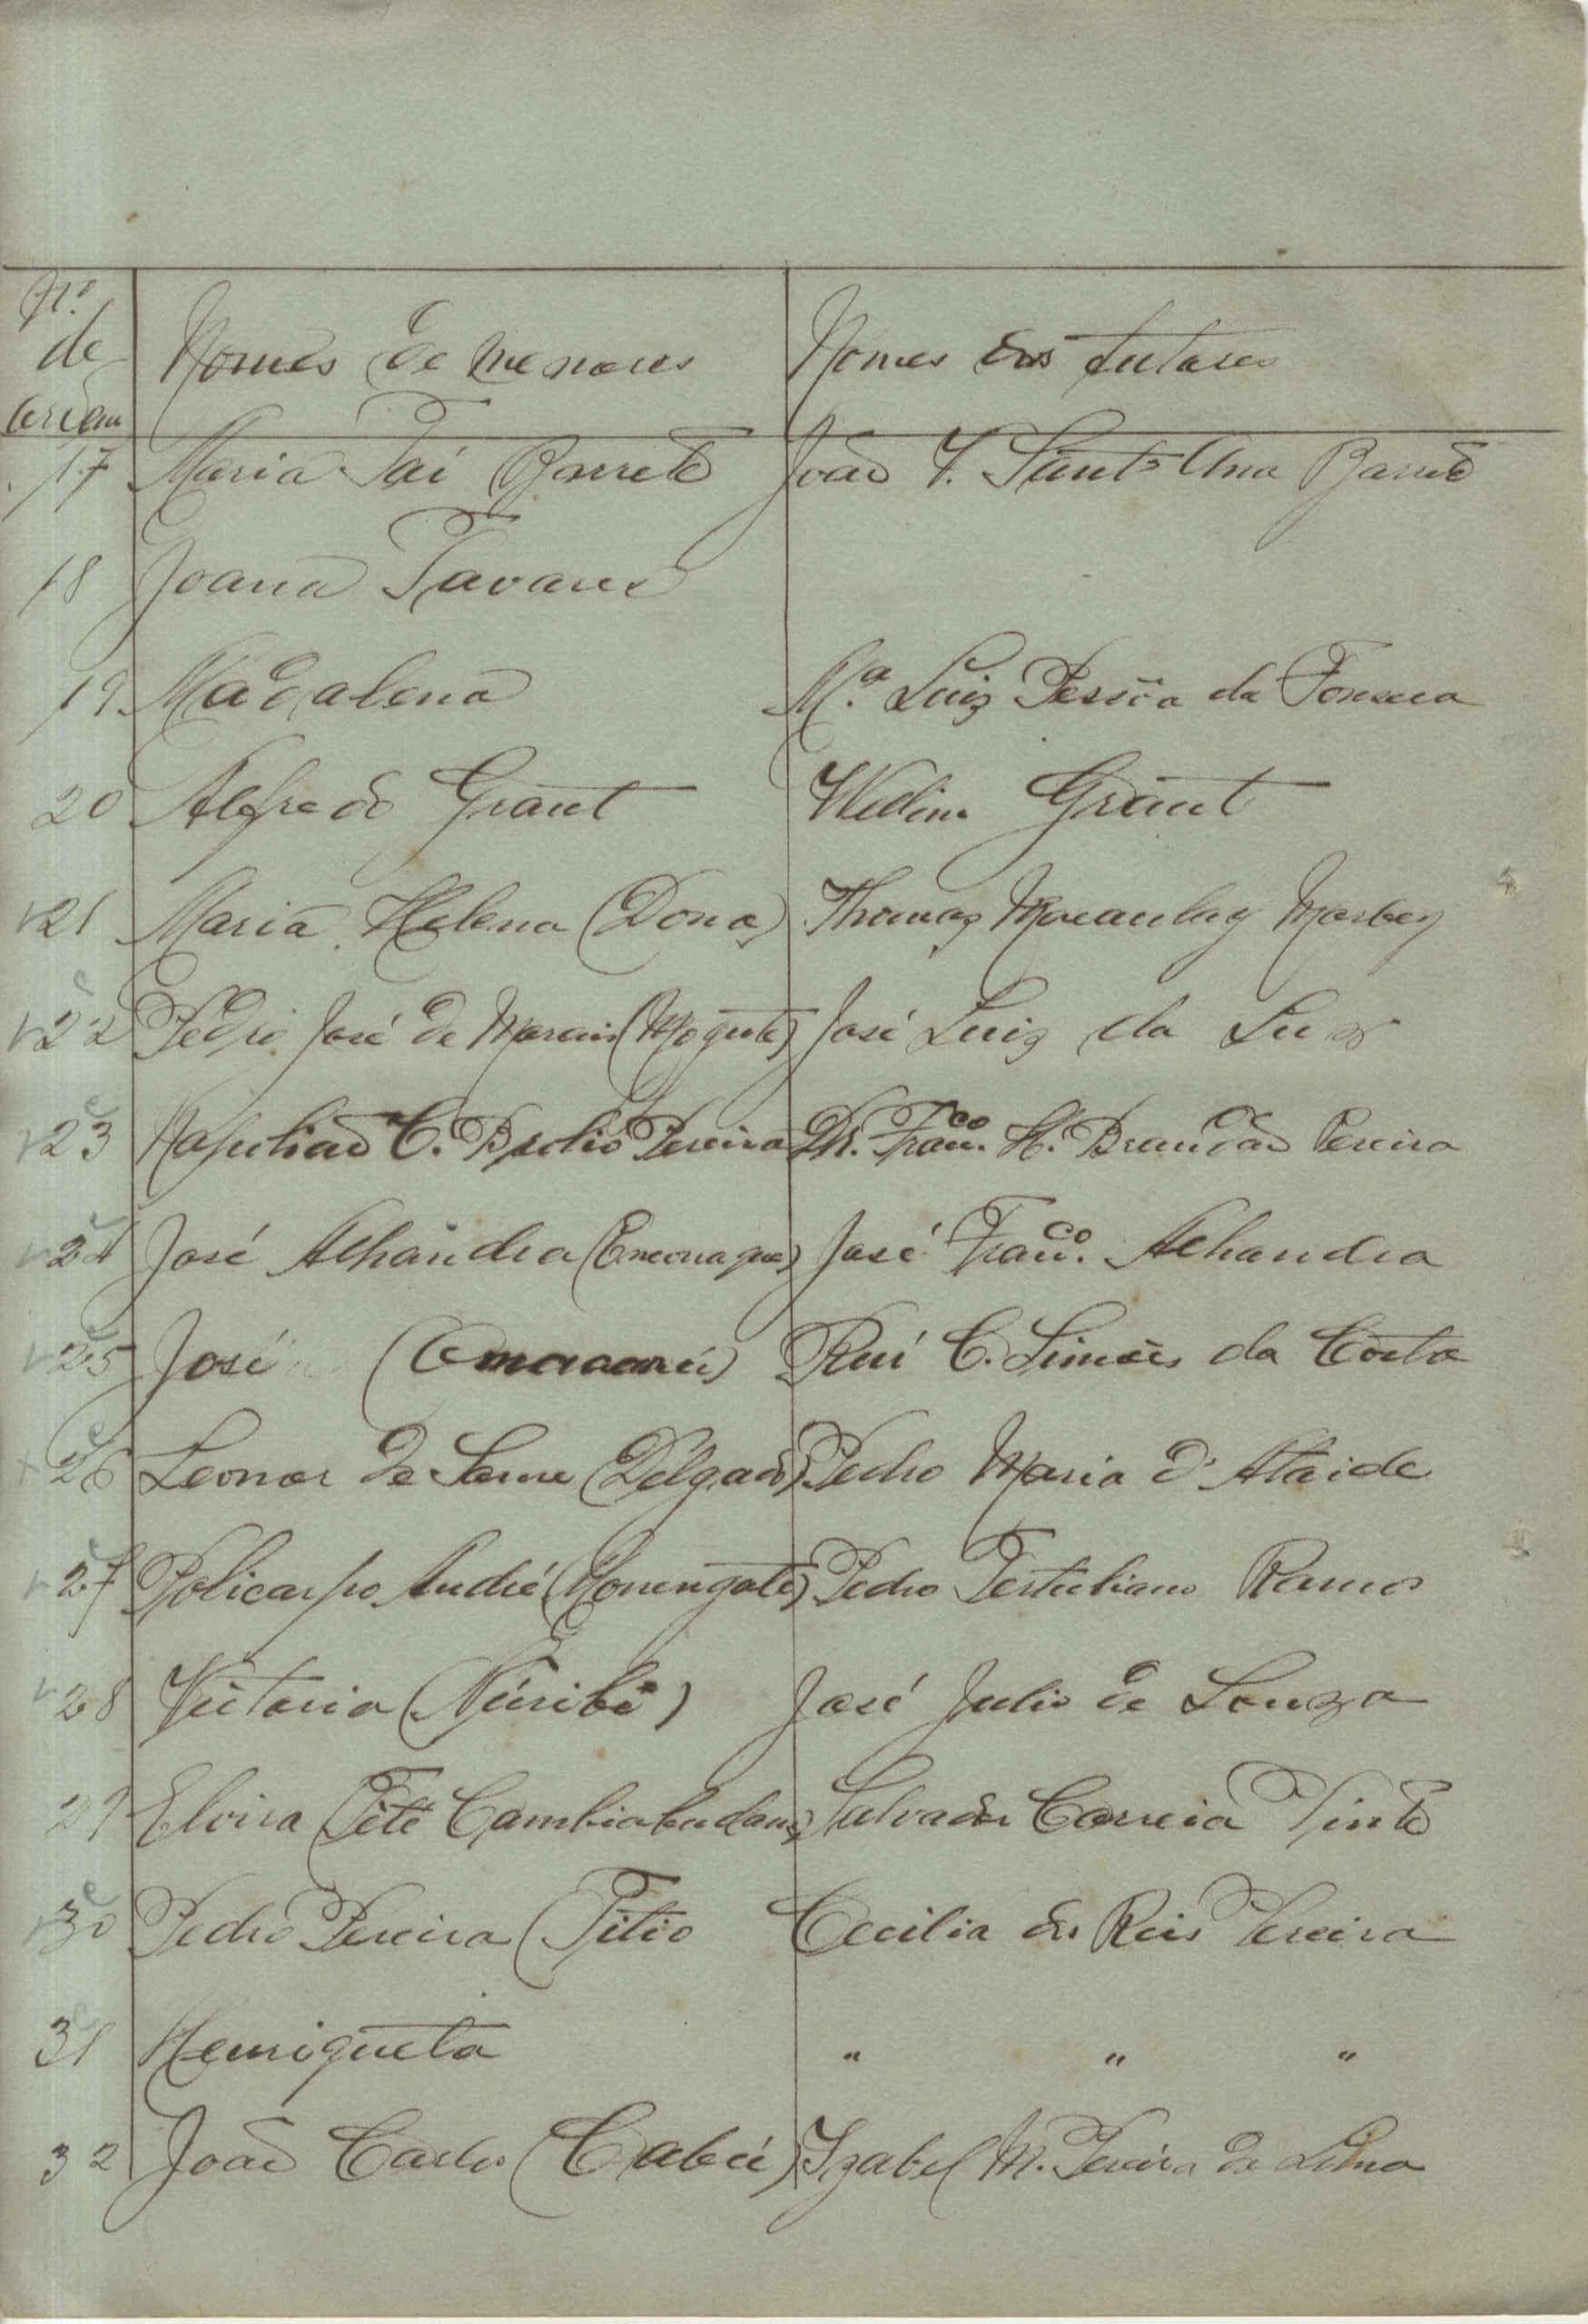 Nº
de
ordem
Nomes de menores Nomes dos tutores
17 Maria Taí Barreto João F. Sant'Ana Barreto
18 Joana Tavares
19 Magdalena M.ª Luiz Pessôa da Fonseca
20 Alfredo Grant Grant
21 Maria Helena (Dona) Thomaz Macaulay Marbey
22 Pedro José de Moraes José Luiz da Luz
23 Napulião C. Pereira Dr. Franco. H. Brandão Pereira
24 José Achandra José Franco. Achandra
25 José Rui C. Simões da Costa
26 Leonor de (Delgado) Pedro Maria d'Ataide
27 Policarpo André Pedro Tertuliano Ramos
28 Victoria José Julio de Souza
29 Elvira (Tété Salvador Correia Pinto
30 Pedro Pereira (Titio Cecilia dos Reis Pereira
31 Henriqueta " " "
32 João Carlos Izabel M. Pereira de Lima